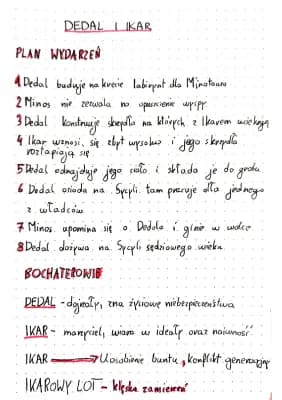 DEDAL I IKAR
PLAN WYDARZEŃ
1 Dedal buduje na krecie labirynt dla Minotaura
2 Minos nie zezwala na opuszczenie wyspy
3 Dedal konstruuje skrzydła na których z Ikarem uciekają
4 Ikar wznosi się zbyt wysoko i jego skrzydła
roztapiają się
5 Dedal odnajduje jego ciało i składa je do grobu
6 Dedal osiada na Sycylii. tam pracuje dla jednego
z władców
7 Minos upomina się o Dedala i ginie w walce
8 Dedal dożywa na Sycylii sędziowego wieku
BOCHATEROWIE
DEDAL - dojrzały, zna życiowe niebezpieczeństwa
IKAR - marzyciel, wiara w ideały oraz naiwność
IKAR → Uosobienie buntu, konflikt generacyjny
IKAROWY LOT - klęska zamierzeń